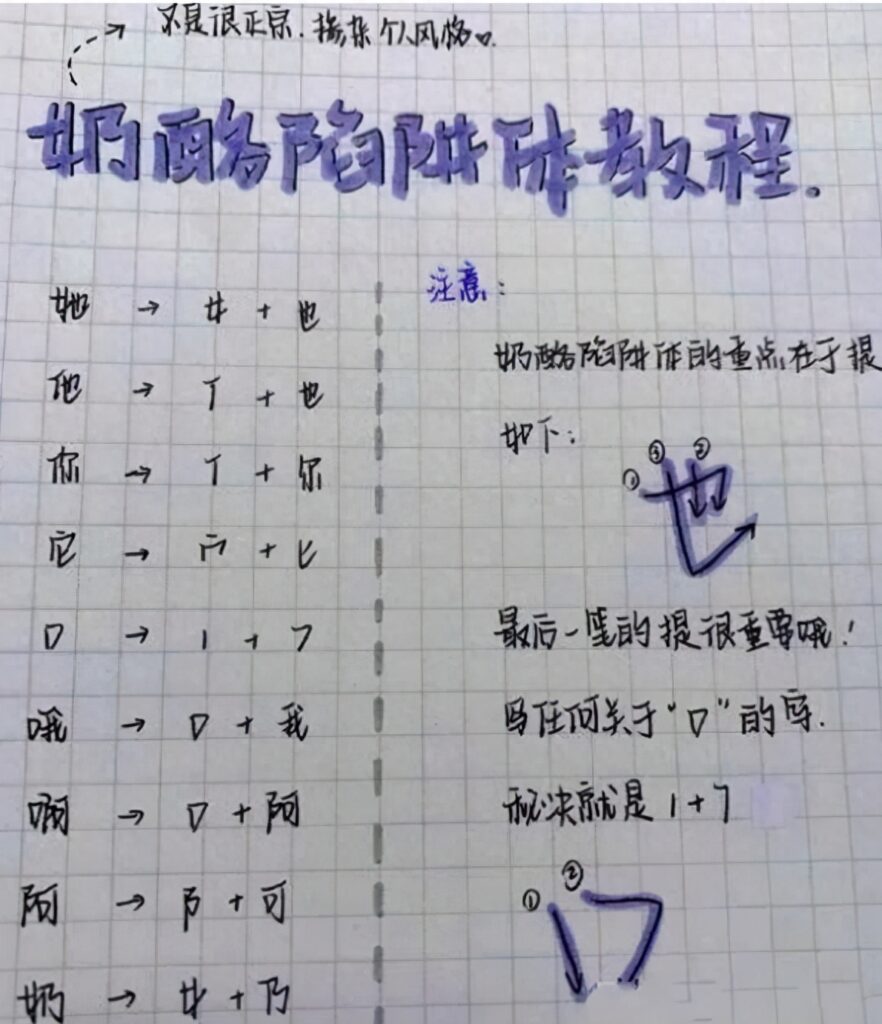 不是很正宗.掺杂个人风格。
奶酪陷阱体教程.
她 → 女 + 也
他 → 亻 + 也
你 → 亻 + 尔
它 → 宀 + 匕
口 → 丨 + ㇇
哦 → 口 + 我
啊 → 口 + 阿
阿 → 阝 + 可
奶 → 女 + 乃
注意:
奶酪陷阱体的重点在于提
如下:
① ③ ②
也
最后一笔的提很重要哦!
写任何关于“口”的字.
秘诀就是 1 + 7
① ②
口